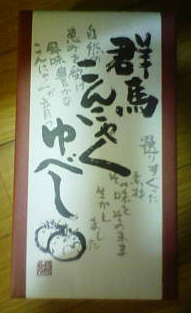 群馬
こんにゃく
ゆべし
選りすぐった
素材
の味をそのまま
生かし
ました
自然の
恵みを受け
風味豊かな
こんにゃく